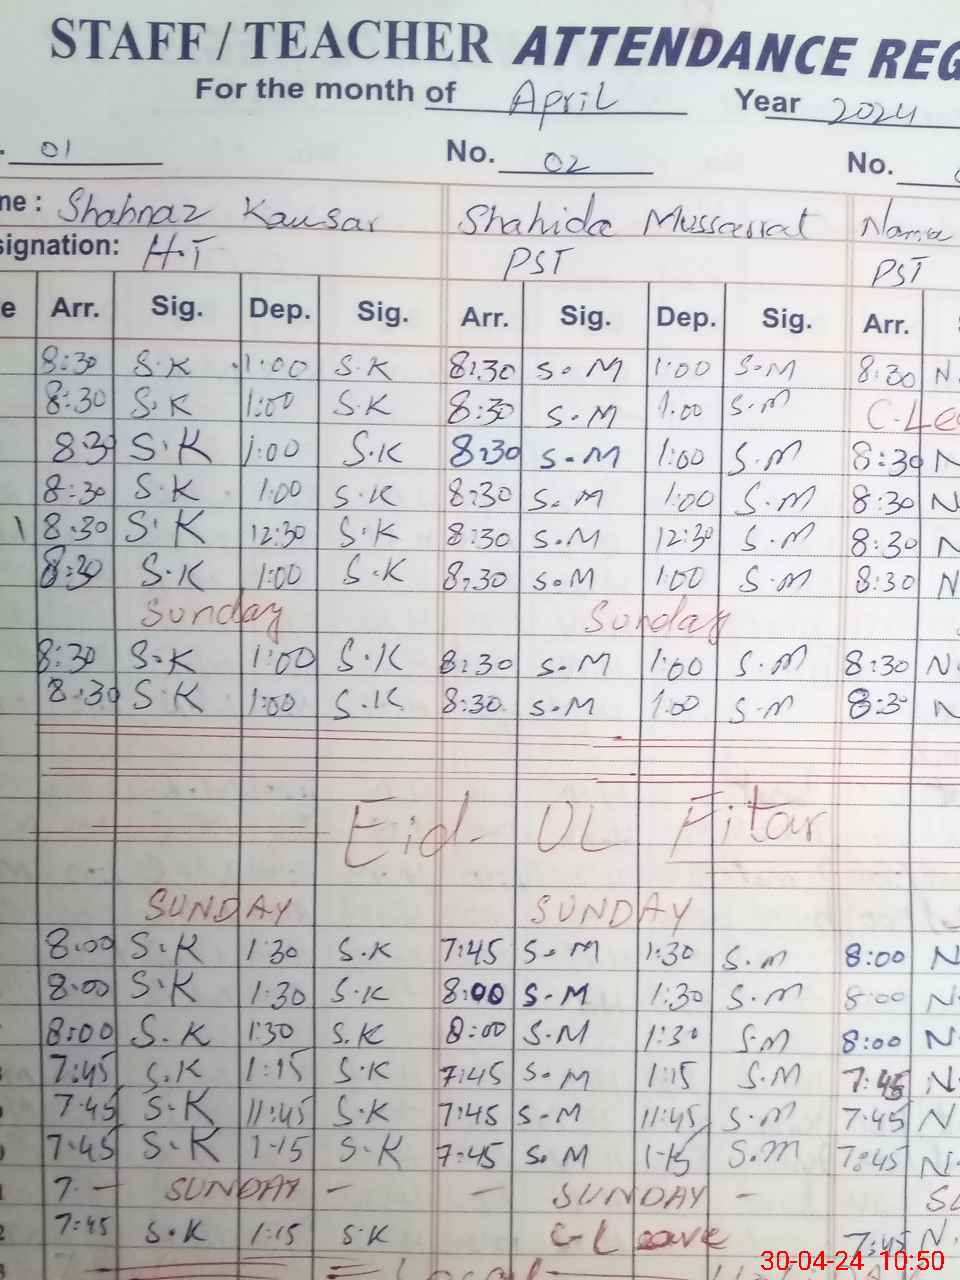 STAFF / TEACHER ATTENDANCE REG
For the month of April Year 2024
01 No. 02 No.
ne : Shahnaz Kausar Shahida Mussarrat
signation: H.T PST PST
e Arr. Sig. Dep. Sig. Arr. Sig. Dep. Sig. Arr.
8:30 S.K 1:00 S.K 8:30 S.M 1:00 S.M 8:30 N.
8:30 S.K 1:00 S.K 8:30 S.M 1.00 S.M C-Le
8:30 S.K 1:00 S.K 8:30 S.M 1:00 S.M 8:30 N
8:30 S.K 1:00 S.K 8:30 S.M 1:00 S.M 8:30 N
8:30 S.K 12:30 S.K 8:30 S.M 12:30 S.M 8:30 N
8:30 S.K 1:00 S.K 8:30 S.M 1:00 S.M 8:30 N
Sunday Sunday
8:30 S.K 1:00 S.K 8:30 S.M 1:00 S.M 8:30 N.
8:30 S.K 1:00 S.K 8:30 S.M 1:00 S.M 8:30 N
Eid- UL Fitar
SUNDAY SUNDAY
8:00 S.K 1:30 S.K 7:45 S.M 1:30 S.M 8:00 N
8:00 S.K 1:30 S.K 8:00 S-M 1:30 S.M 8:00 N.
8:00 S.K 1:30 S.K 8:00 S.M 1:30 S.M 8:00 N.
7:45 S.K 1:15 S.K 7:45 S.M 1:15 S.M 7:45 N.
7:45 S-K 11:45 S.K 7:45 S-M 11:45 S.M 7:45 N
7:45 S-K 1-15 S.K 7:45 S.M 1-15 S.M 7:45 N.
7. - SUNDAY - - SUNDAY - SU
7:45 S.K 1:15 S.K C-Leave 7:45 N.
30-04-24 10:50